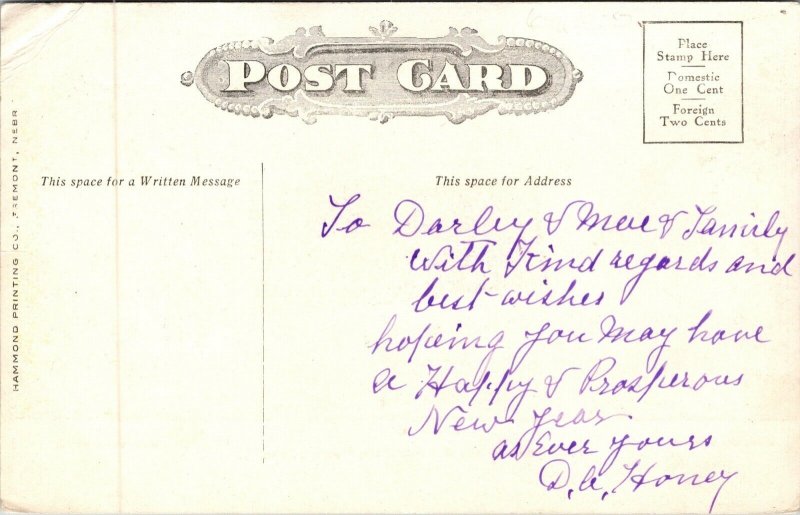 POST CARD
Place
Stamp Here
Domestic
One Cent
Foreign
Two Cents
HAMMOND PRINTING CO., FREMONT, NEBR
This space for a Written Message
This space for Address
To Darley & Mae & Family
with Kind regards and
best wishes
hoping you May have
a Happy & Prosperous
New year.
as Ever yours
Honey